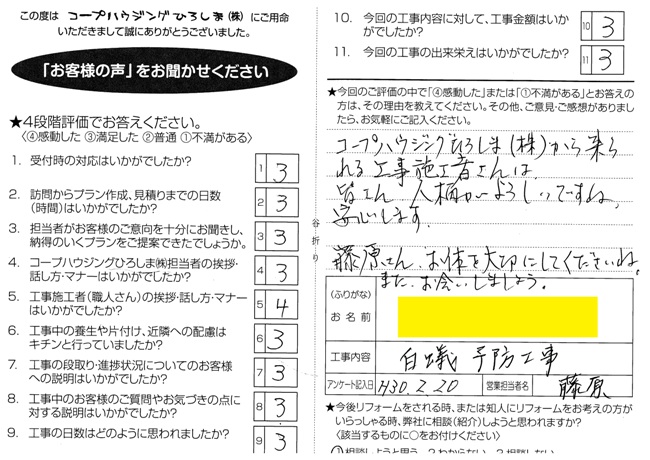 この度は コープハウジングひろしま(株) にご用命
いただきまして誠にありがとうございました。
「お客様の声」をお聞かせください
★4段階評価でお答えください。
〈④感動した ③満足した ②普通 ①不満がある〉
1. 受付時の対応はいかがでしたか?
1 3
2. 訪問からプラン作成、見積りまでの日数
(時間)はいかがでしたか?
2 3
3. 担当者がお客様のご意向を十分にお聞きし、
納得のいくプランをご提案できたでしょうか。
3 3
4. コープハウジングひろしま㈱担当者の挨拶・
話し方・マナーはいかがでしたか?
4 3
5. 工事施工者(職人さん)の挨拶・話し方・マナー
はいかがでしたか?
5 4
6. 工事中の養生や片付け、近隣への配慮は
キチンと行っていましたか?
6 3
7. 工事の段取り・進捗状況についてのお客様
への説明はいかがでしたか?
7 3
8. 工事中のお客様のご質問やお気づきの点に
対する説明はいかがでしたか?
8 3
9. 工事の日数はどのように思われましたか?
9 3
谷折り
10. 今回の工事内容に対して、工事金額はいか
がでしたか?
10 3
11. 今回の工事の出来栄えはいかがでしたか?
11 3
★今回のご評価の中で「④感動した」または「①不満がある」とお答え
の方は、その理由を教えてください。その他、ご意見・ご感想がありまし
たら、お気軽にご記入ください。
コープハウジングひろしま(株)から来ら
れる工事施工者さんは、
皆さん 人柄がよろしいですね。
安心します。
藤原さん お体を大切にしてくださいね。
また、お会いしましょう。
(ふりがな)
お名前
工事内容 白蟻 予防工事
アンケート記入日 H30.2.20 営業担当者名 藤原
★今後リフォームをされる時、または知人にリフォームをお考えの方が
いらっしゃる時、弊社に相談(紹介)しようと思いますか?
〈該当するものに○をお付けください〉